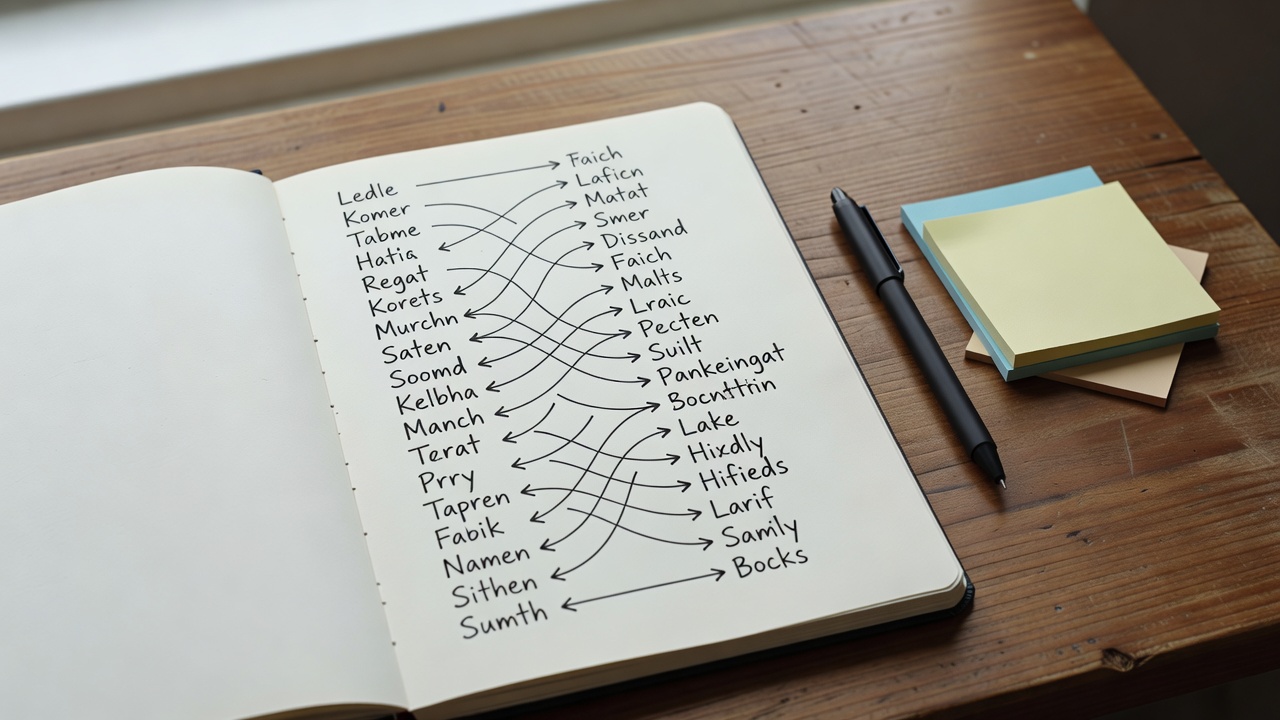 Ledle
Komer
Tabme
Hatia
Regat
Korets
Murchn
Saten
Soomd
Kelbha
Manch
Terat
Prry
Tapren
Fabik
Namen
Sithen
Sumth
Faich
Laficn
Matat
Smer
Dissand
Faich
Malts
Lraic
Pecten
Suilt
Pankeingat
Bocnttrin
Lake
Hixdly
Hifieds
Larif
Samily
Bocks